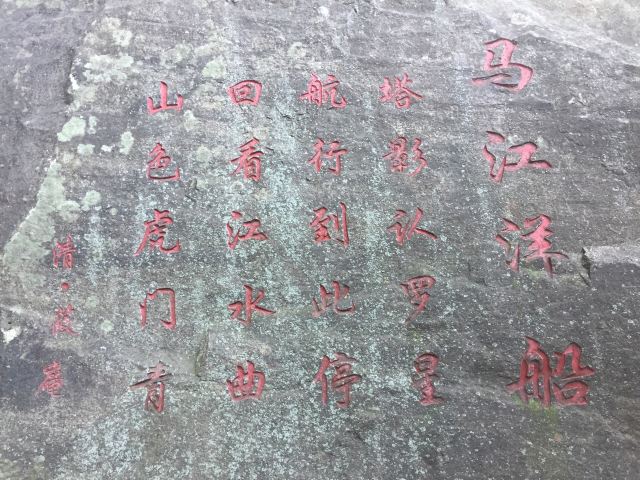 马江洋船
塔影认罗星
航行到此停
回看江水曲
山色虎门青
清·葭菴